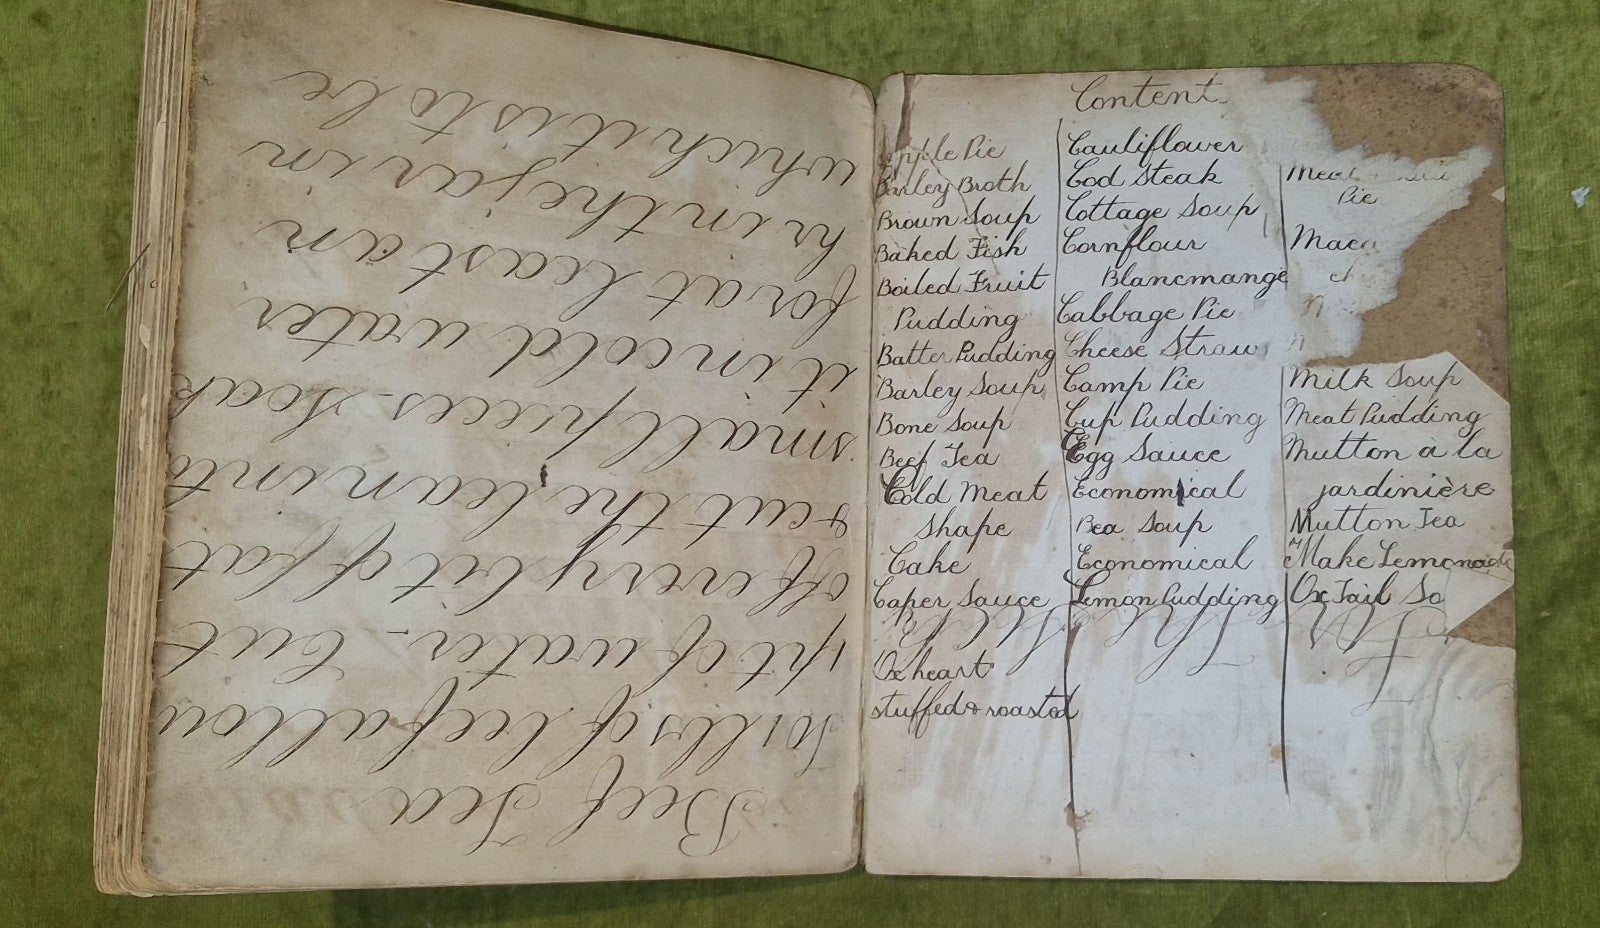 Beef Tea
To 1 lb of beef allow
1 pt of water. Cut
off every bit of fat
& cut the lean into
small pieces. Soak
it in cold water
for at least an
hr in the jar in
which it is to be
Content
Apple Pie
Barley Broth
Brown Soup
Baked Fish
Boiled Fruit
Pudding
Batter Pudding
Barley Soup
Bone Soup
Beef Tea
Cold Meat
Shape
Cake
Caper Sauce
Ox heart
stuffed & roasted
Cauliflower
Cod Steak
Cottage Soup
Cornflour
Blancmange
Cabbage Pie
Cheese Straws
Camp Pie
Cup Pudding
Egg Sauce
Economical
Pea Soup
Economical
Lemon Pudding
Meat
Pie
Milk Soup
Meat Pudding
Mutton à la
jardinière
Mutton Tea
Make Lemonade
Ox Tail So